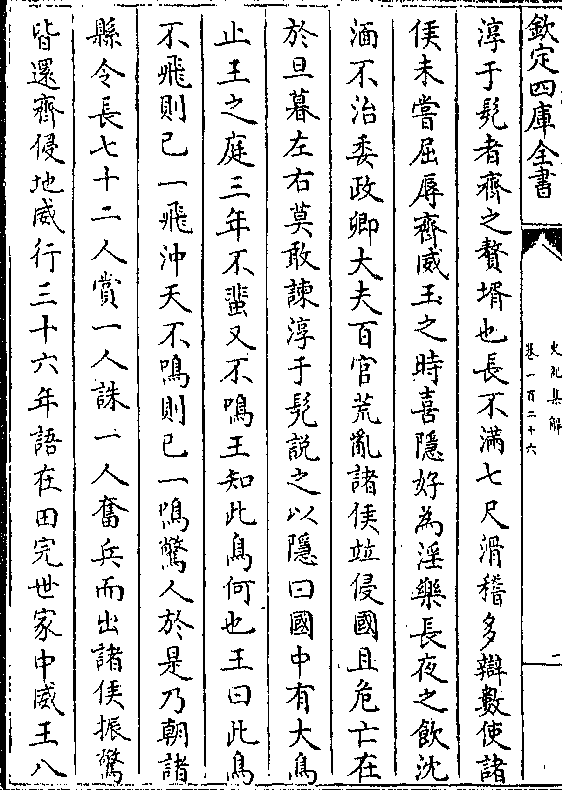 欽定四庫全書
史記集解
卷一百二十六
二
淳于髠者齊之贅壻也長不滿七尺滑稽多辯數使諸
侯未嘗屈辱齊威王之時喜隱好為淫樂長夜之飲沈
湎不治委政卿大夫百官荒亂諸侯並侵國且危亡在
於旦暮左右莫敢諫淳于髠説之以隱曰國中有大鳥
止王之庭三年不蜚又不鳴王知此鳥何也王曰此鳥
不飛則已一飛沖天不鳴則已一鳴驚人於是乃朝諸
縣令長七十二人賞一人誅一人奮兵而出諸侯振驚
皆還齊侵地威行三十六年語在田完世家中威王八